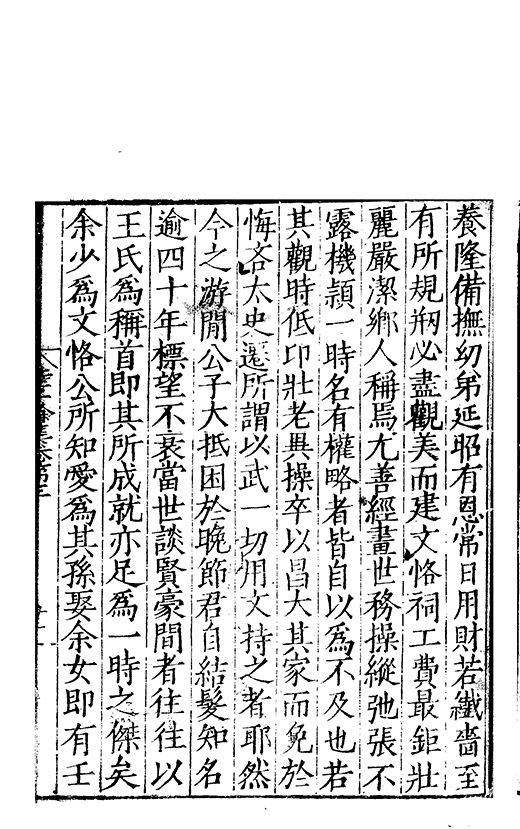 養隆備撫幼弟延昭有恩常日用財若纎嗇至
有所規剏必盡觀美而建文恪祠工費最鉅壯
麗嚴潔鄉人稱焉尤善經畫世務操縱弛張不
露機頴一時名有權略者皆自以爲不及也若
其觀時低卬壯老異操卒以昌大其家而免於
悔吝太史遷所謂以武一切用文持之者耶然
今之游閒公子大抵困於晚節君自結髮知名
逾四十年標望不衰當世談賢豪間者往往以
王氏爲稱首即其所成就亦足爲一時之傑矣
余少爲文恪公所知愛爲其孫娶余女即有壬